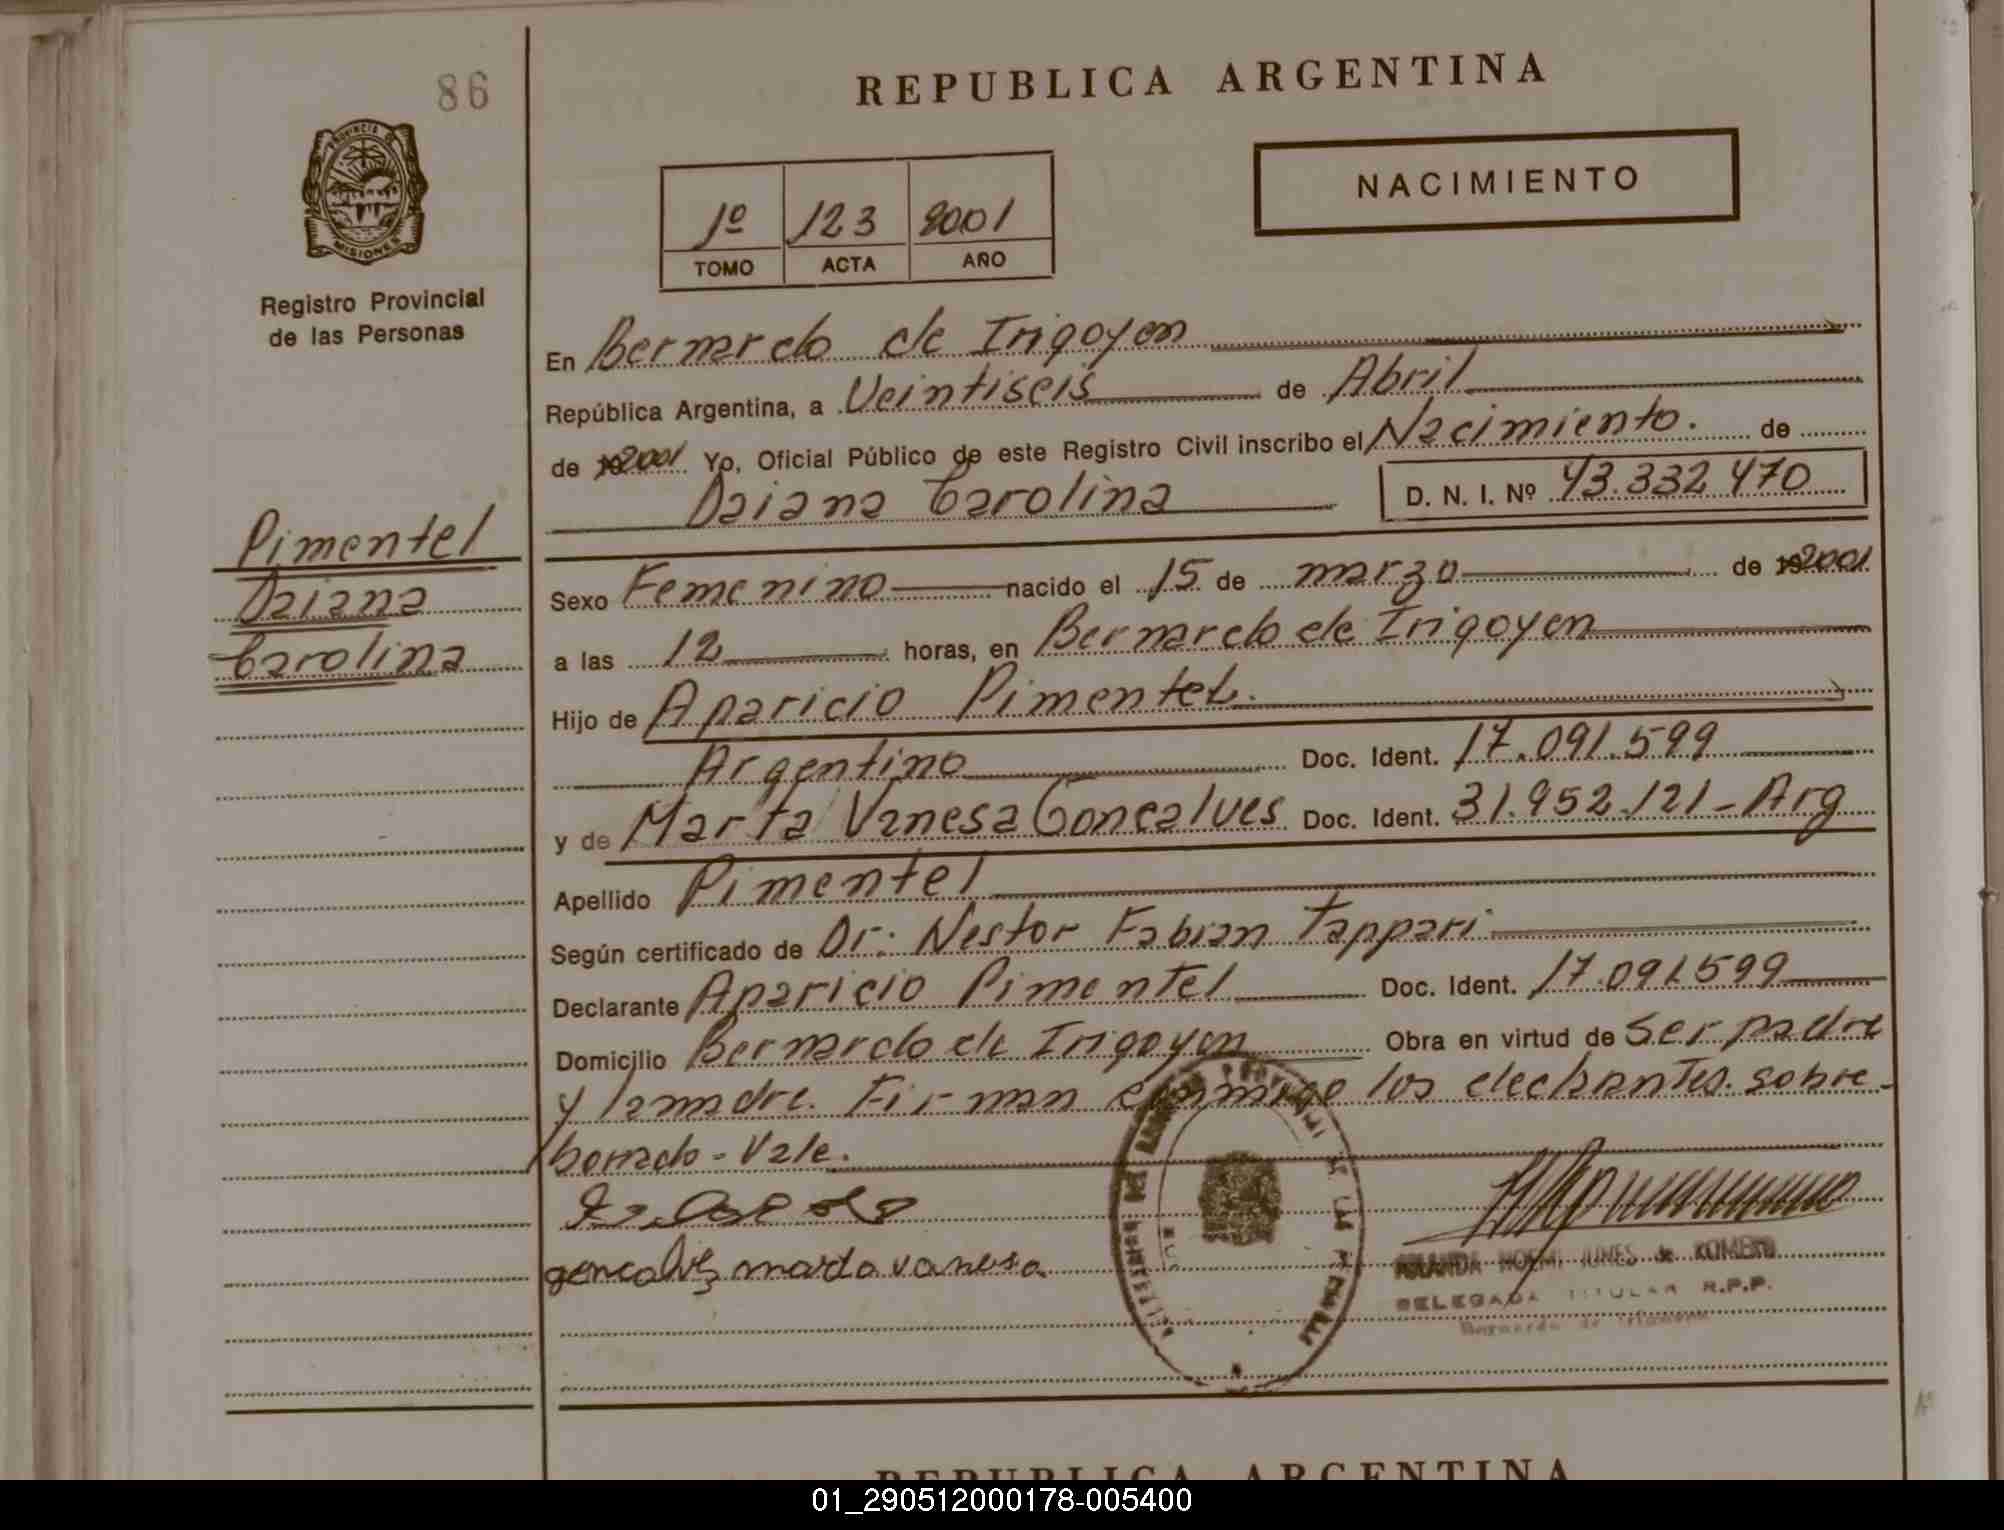 86
REPUBLICA ARGENTINA
NACIMIENTO
PROVINCIA DE
MISIONES
Registro Provincial
de las Personas
1º 123 2001
TOMO ACTA AÑO
En Bernardo de Irigoyen
República Argentina, a Veintiseis de Abril
de 2001 Yo, Oficial Público de este Registro Civil inscribo el Nacimiento. de
Daiana Carolina D. N. I. Nº 43.332.470
Pimentel
Daiana
Carolina
Sexo Femenino nacido el 15 de marzo de 2001
a las 12 horas, en Bernardo de Irigoyen
Hijo de Aparicio Pimentel.
Argentino Doc. Ident. 17.091.599
y de Marta Vanesa Goncalves Doc. Ident. 31.952.121 - Arg
Apellido Pimentel
Según certificado de Dr: Nestor Fabian Tappari
Declarante Aparicio Pimentel Doc. Ident. 17.091.599
Domicilio Bernardo de Irigoyen Obra en virtud de Ser padre
y la madre. Firman conmigo los declarantes. sobre-
borrado - Vale.
goncalves marta vanesa
NOEMI JUNES de
DELEGADA TITULAR R.P.P.
Bernardo de Irigoyen
REPUBLICA ARGENTINA
01_290512000178-005400